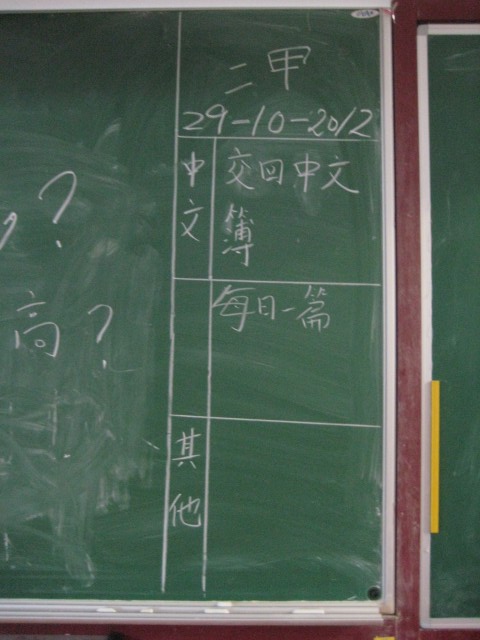 ?
高?
二甲
29-10-2012
中文
交回中文
簿
每日一篇
其他